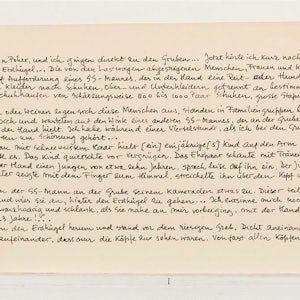 Poher, und ich, gingen direkt zu den Gruben... Jetzt hörte ich kurz nach
Erdhügel... Die von den Lastwagen abgestiegenen Menschen, Frauen und K
Aufforderung eines SS-Mannes, der in der Hand eine Reit- oder Hund
Kleider nach Schuhen, Ober- und Unterkleidern getrennt an bestimm
chuhhaufen von schätzungsweise 800 bis 1000 Paar Schuhen, große Stape
oder Weinen zogen sich diese Menschen aus, standen in Familiengruppen b
ich und warteten auf den Wink eines anderen SS-Mannes, der an der Grube
der Hand hielt. Ich habe während einer Viertelstunde, als ich bei den
um Schonung gehört...
au mit schneeweißem Haar hielt [ein] einjährige[s] Kind auf dem Arm
Das Kind quietschte vor Vergnügen. Das Ehepaar schaute mit Tränen
er Hand einen Jungen von etwa zehn Jahren, sprach leise auf ihn ein. Der
ter zeigte mit dem Finger zum Himmel, streichelte ihn über den Kopf
der SS-Mann an der Grube seinem Kameraden etwas zu. Dieser teil
nd wies sie an, hinter den Erdhügel zu gehen... Ich entsinne mich noch
warzhaarig und schlank, als sie nahe an mir vorbeiging, mit der Hand
3 Jahre!'...
den Erdhügel herum und stand vor dem riesigen Grab. Dicht aneinan
ufeinander, dass nur die Köpfe zu sehen waren. Von fast allen Köpfen